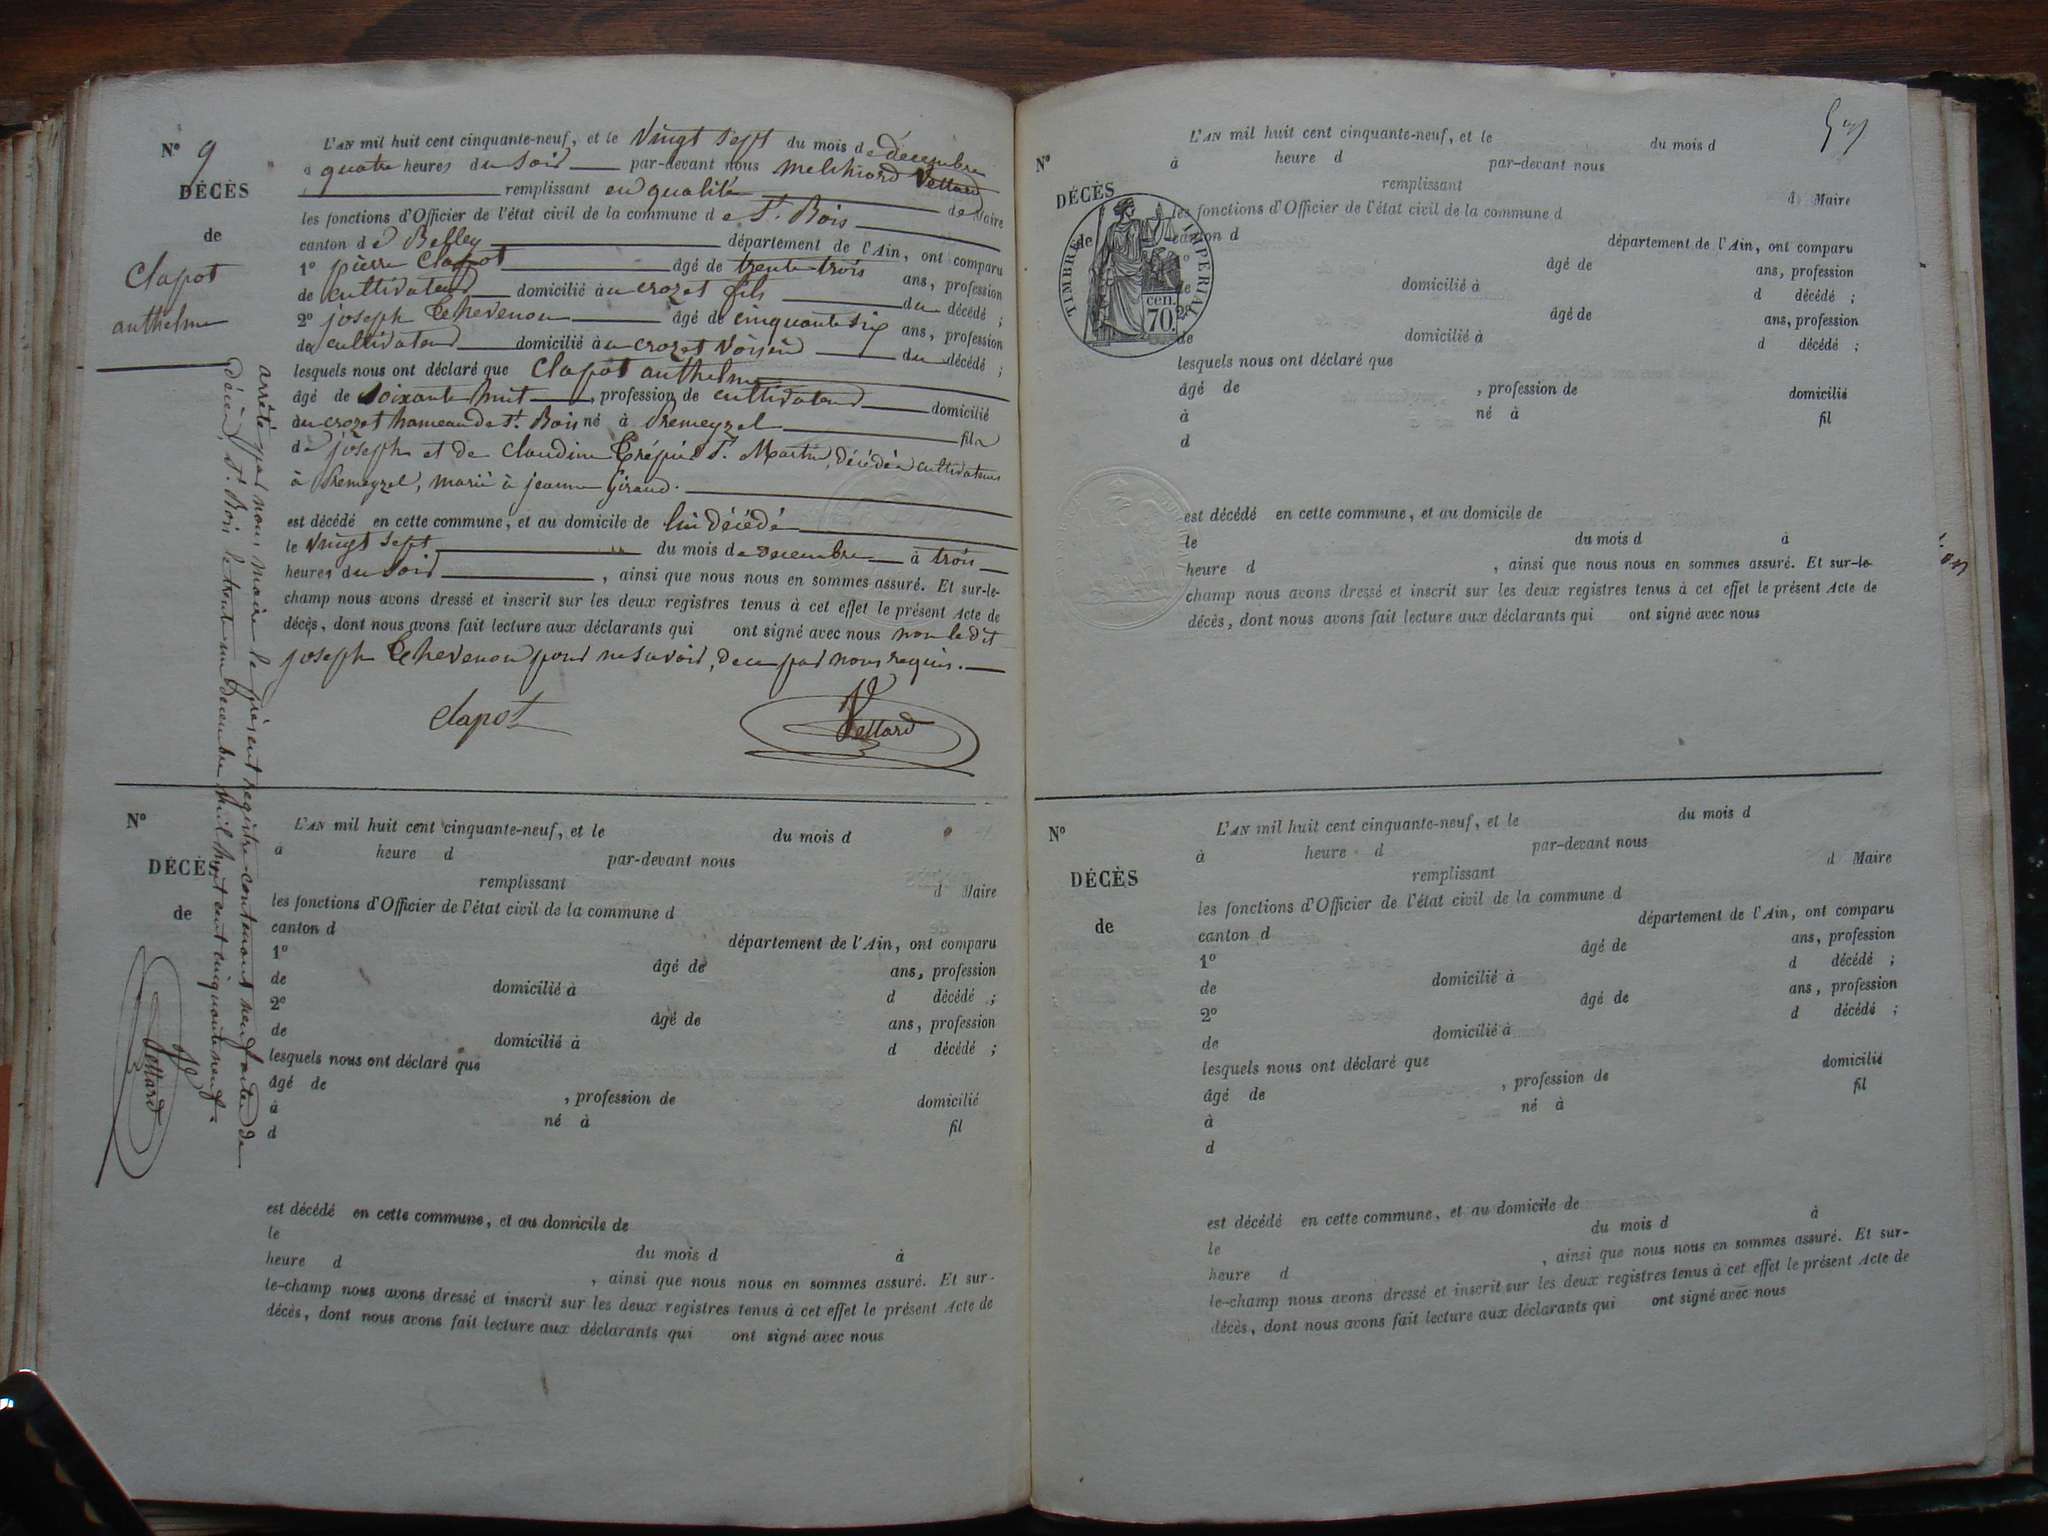 N° 9
DÉCÈS
de
Clapot
anthelme
L'AN mil huit cent cinquante-neuf, et le Vingt sept du mois de décembre
à quatre heures du soir par-devant nous melchiord Vettard
remplissant en qualité de Maire
les fonctions d'Officier de l'état civil de la commune de St. Bois
canton de Belley département de l'Ain, ont comparu
1° pierre Clapot âgé de trente trois ans, profession
de cultivateur domicilié au crozet fils du décédé ;
2° joseph Thevenon âgé de cinquante six ans, profession
de cultivateur domicilié au crozet voisin du décédé ;
lesquels nous ont déclaré que Clapot anthelme
âgé de soixante huit, profession de cultivateur domicilié
au crozet hameau de St. Bois né à Premeyzel fils
de joseph et de Claudine Trépier St. Martin, décédés cultivateurs
à Premeyzel, marié à jeanne Giraud.
est décédé en cette commune, et au domicile de lui décédé
le Vingt sept du mois de decembre à trois
heures du soir, ainsi que nous nous en sommes assuré. Et sur-le-
champ nous avons dressé et inscrit sur les deux registres tenus à cet effet le présent Acte de
décès, dont nous avons fait lecture aux déclarants qui ont signé avec nous non le dit
joseph Thevenon pour ne savoir, de ce par nous requis.
Clapot
Vettard
arrêté par nous, maire le présent registre contenant neuf actes de
décès, St. Bois le trente un decembre mil huit cent cinquante neuf.
Vettard
N°
DÉCÈS
de
L'AN mil huit cent cinquante-neuf, et le du mois d
à heure d par-devant nous
remplissant d Maire
les fonctions d'Officier de l'état civil de la commune d
canton d département de l'Ain, ont comparu
1° âgé de ans, profession
de domicilié à d décédé ;
2° âgé de ans, profession
de domicilié à d décédé ;
lesquels nous ont déclaré que
âgé de , profession de domicilié
à né à fil
d
est décédé en cette commune, et au domicile de
le du mois d à
heure d , ainsi que nous nous en sommes assuré. Et sur-
le-champ nous avons dressé et inscrit sur les deux registres tenus à cet effet le présent Acte de
décès, dont nous avons fait lecture aux déclarants qui ont signé avec nous
N°
DÉCÈS
de
TIMBRE IMPERIAL
cen.
70.
L'AN mil huit cent cinquante-neuf, et le du mois d
à heure d par-devant nous
remplissant d Maire
les fonctions d'Officier de l'état civil de la commune d
canton d département de l'Ain, ont comparu
1° âgé de ans, profession
de domicilié à d décédé ;
2° âgé de ans, profession
de domicilié à d décédé ;
lesquels nous ont déclaré que
âgé de , profession de domicilié
à né à fil
d
est décédé en cette commune, et au domicile de
le du mois d à
heure d , ainsi que nous nous en sommes assuré. Et sur-le-
champ nous avons dressé et inscrit sur les deux registres tenus à cet effet le présent Acte de
décès, dont nous avons fait lecture aux déclarants qui ont signé avec nous
N°
DÉCÈS
de
L'AN mil huit cent cinquante-neuf, et le du mois d
à heure d par-devant nous
remplissant d Maire
les fonctions d'Officier de l'état civil de la commune d
canton d département de l'Ain, ont comparu
1° âgé de ans, profession
de domicilié à d décédé ;
2° âgé de ans, profession
de domicilié à d décédé ;
lesquels nous ont déclaré que
âgé de , profession de domicilié
à né à fil
d
est décédé en cette commune, et au domicile de
le du mois d à
heure d , ainsi que nous nous en sommes assuré. Et sur-
le-champ nous avons dressé et inscrit sur les deux registres tenus à cet effet le présent Acte de
décès, dont nous avons fait lecture aux déclarants qui ont signé avec nous